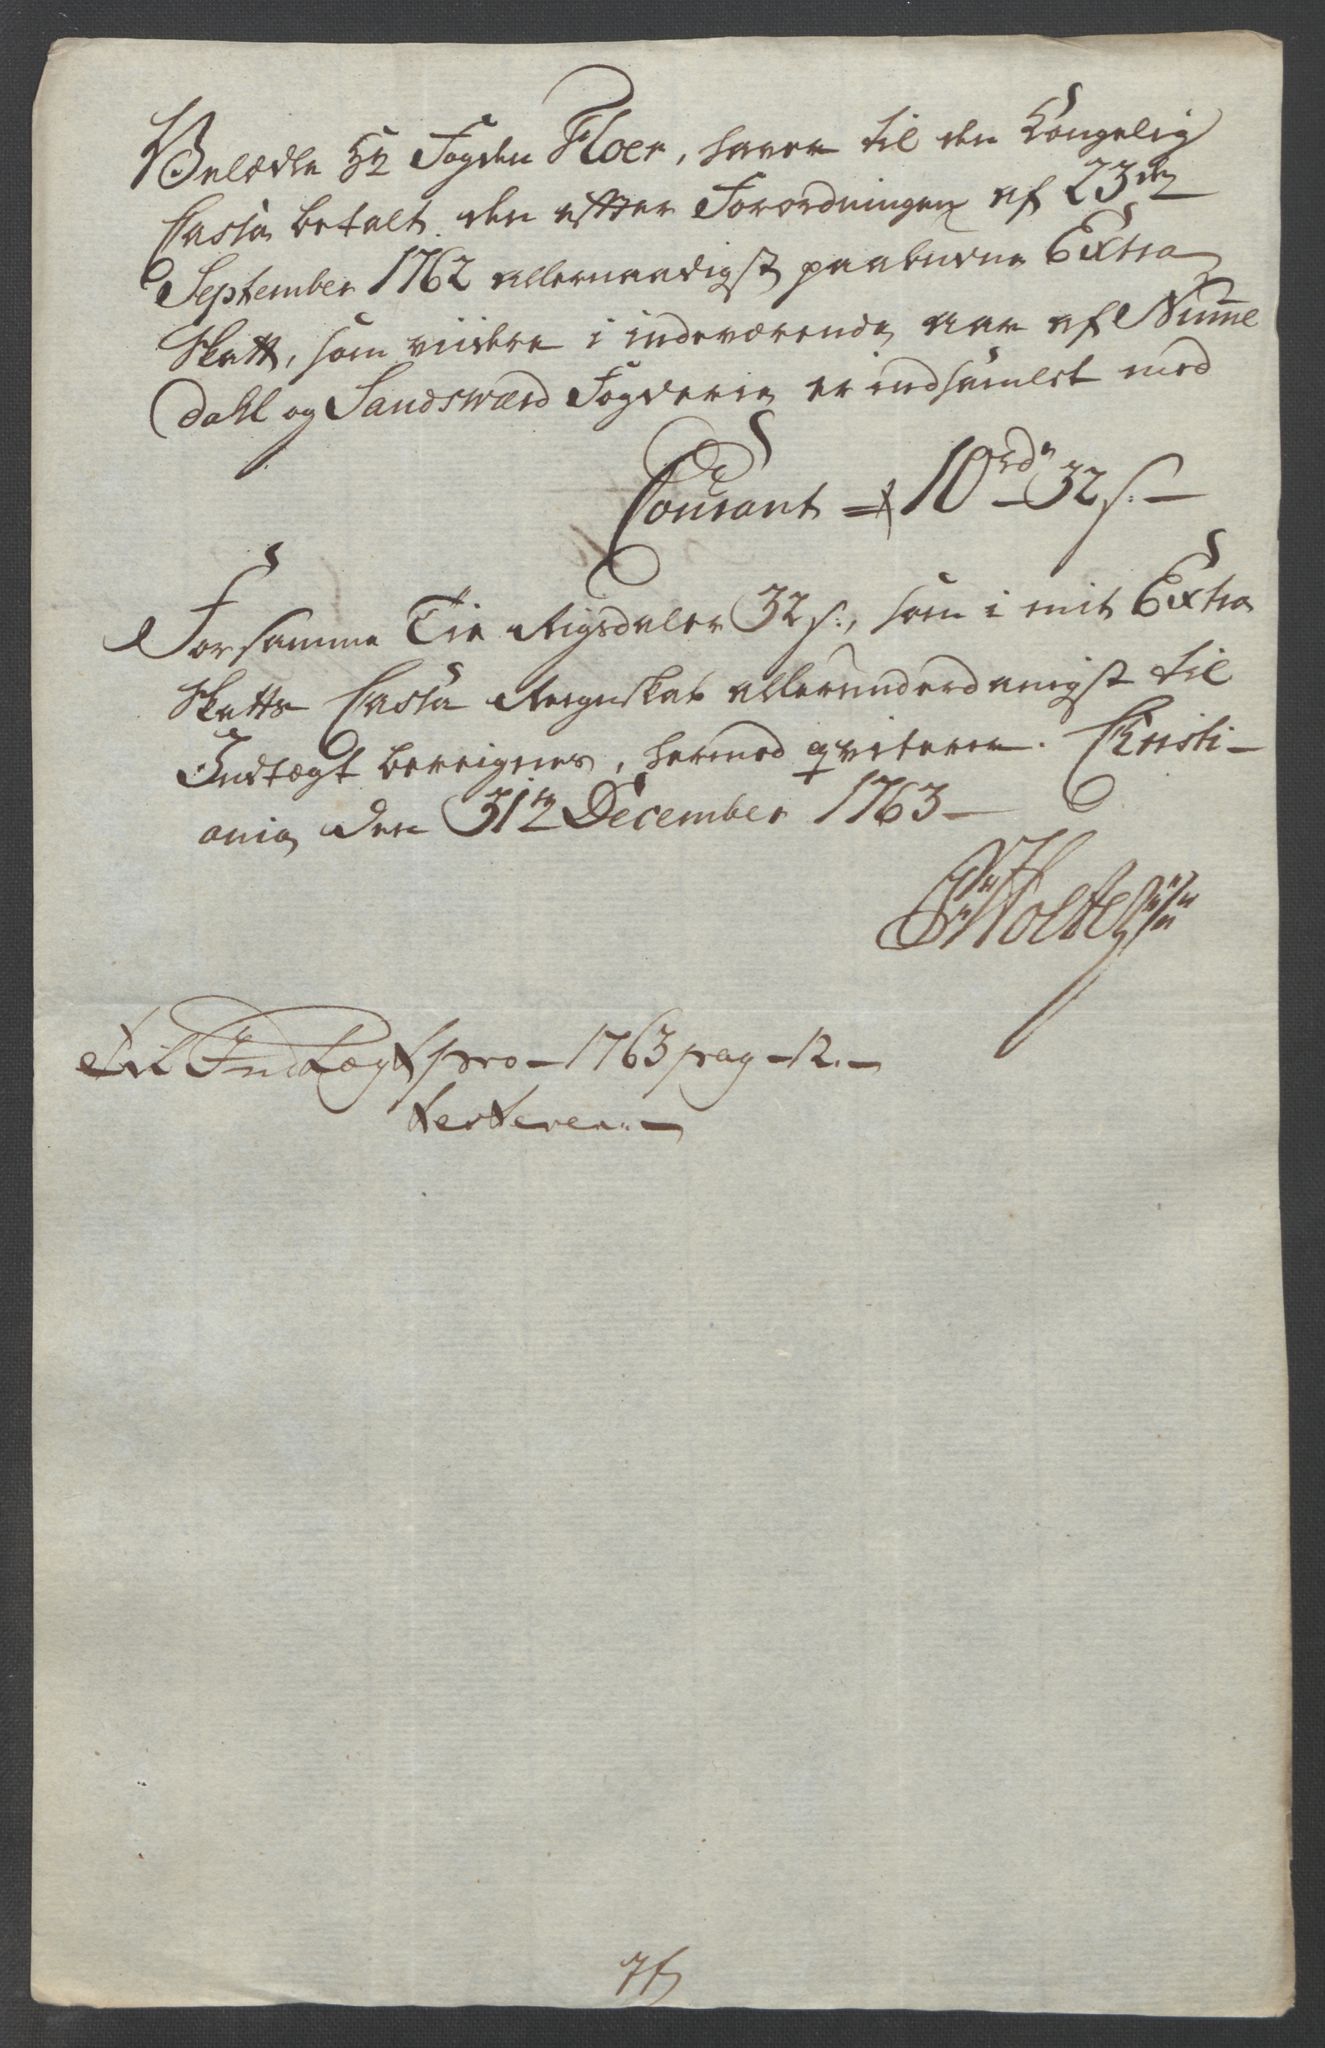 Velædle Hr Fogden Floer, haver til den Kongelig
Cassa betalt den efter Forordningen af 23de
September 1762 allernaadigst paabudne Extra
Skatt, som viidere i indeværende aar af Numme
dahl og Sandsværd Fogderie er indsamlet med
Courant = 10 rd 32 s. —
For samme Tie Rigsdaler 32 s., som i mit Extra
Skatts Cassa Reignskab allerunderdanigst til
Indtægt bereignes, hermed qviteres. Christi-
ania den 31te December 1763 —
Holte
Til Indtægt pro – 1763 pag – 12. –
testerer. —